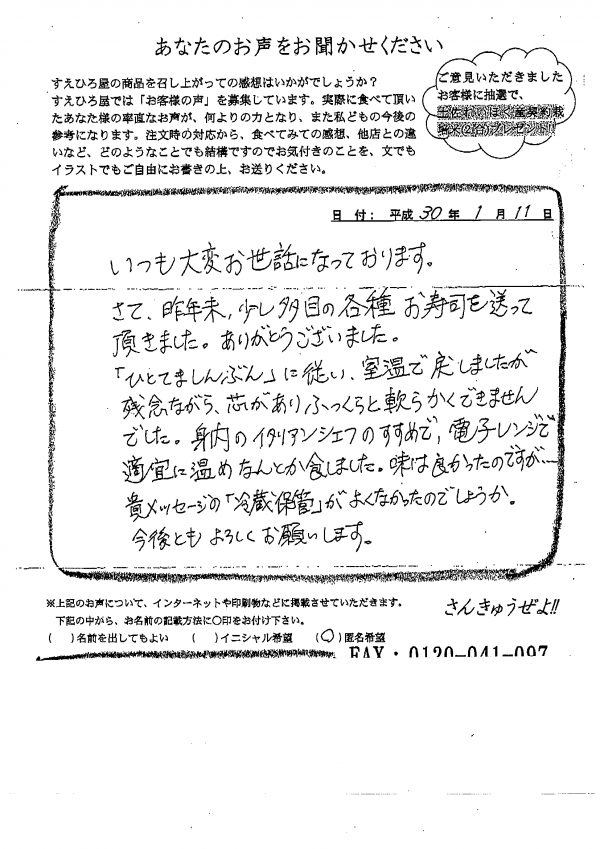 あなたのお声をお聞かせください
すえひろ屋の商品を召し上がっての感想はいかがでしょうか？
すえひろ屋では「お客様の声」を募集しています。実際に食べて頂い
たあなた様の率直なお声が、何よりの力となり、また私どもの今後の
参考になります。注文時の対応から、食べてみての感想、他店との違
いなど、どのようなことでも結構ですのでお気付きのことを、文でも
イラストでもご自由にお書きの上、お送りください。
ご意見いただきました
お客様に抽選で、
日 付： 平成 30 年 1 月 11 日
いつも大変お世話になっております。
さて、昨年末、少し多目の各種お寿司を送って
頂きました。ありがとうございました。
「ひとてましんぶん」に従い、室温で戻しましたが
残念ながら、芯がありふっくらと軟らかくできません
でした。身内のイタリアンシェフのすすめで、電子レンジで
適宜に温めなんとか食しました。味は良かったのですが…
貴メッセージの「冷蔵保管」がよくなかったのでしょうか。
今後ともよろしくお願いします。
※上記のお声について、インターネットや印刷物などに掲載させていただきます。
下記の中から、お名前の記載方法に○印をお付け下さい。
( )名前を出してもよい ( )イニシャル希望 (○)匿名希望
さんきゅうぜよ!!
FAX・0120-041-097